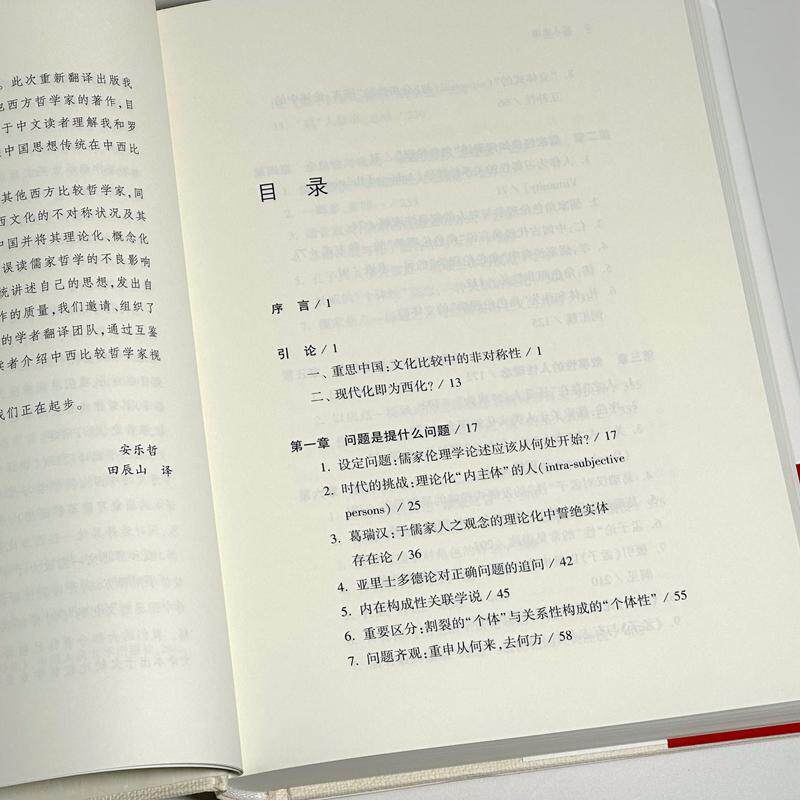 。此次重新翻译出版我
西方哲学家的著作，目
于中文读者理解我和罗
中国思想传统在中西比
其他西方比较哲学家，同
西文化的不对称状况及其
中国并将其理论化、概念化
误读儒家哲学的不良影响
统讲述自己的思想，发出自
作的质量，我们邀请、组织了
的学者翻译团队，通过互鉴
读者介绍中西比较哲学家视
我们正在起步。
安乐哲
田辰山 译
目 录
序 言 / 1
引 论 / 1
一、重思中国：文化比较中的非对称性 / 1
二、现代化即为西化？ / 13
第一章 问题是提什么问题 / 17
1. 设定问题：儒家伦理学论述应该从何处开始？ / 17
2. 时代的挑战：理论化“内主体”的人（intra-subjective
persons） / 25
3. 葛瑞汉：于儒家人之观念的理论化中誓绝实体
存在论 / 36
4. 亚里士多德论对正确问题的追问 / 42
5. 内在构成性关联学说 / 45
6. 重要区分：割裂的“个体”与关系性构成的“个体性” / 55
7. 问题齐观：重申从何来，去何方 / 58